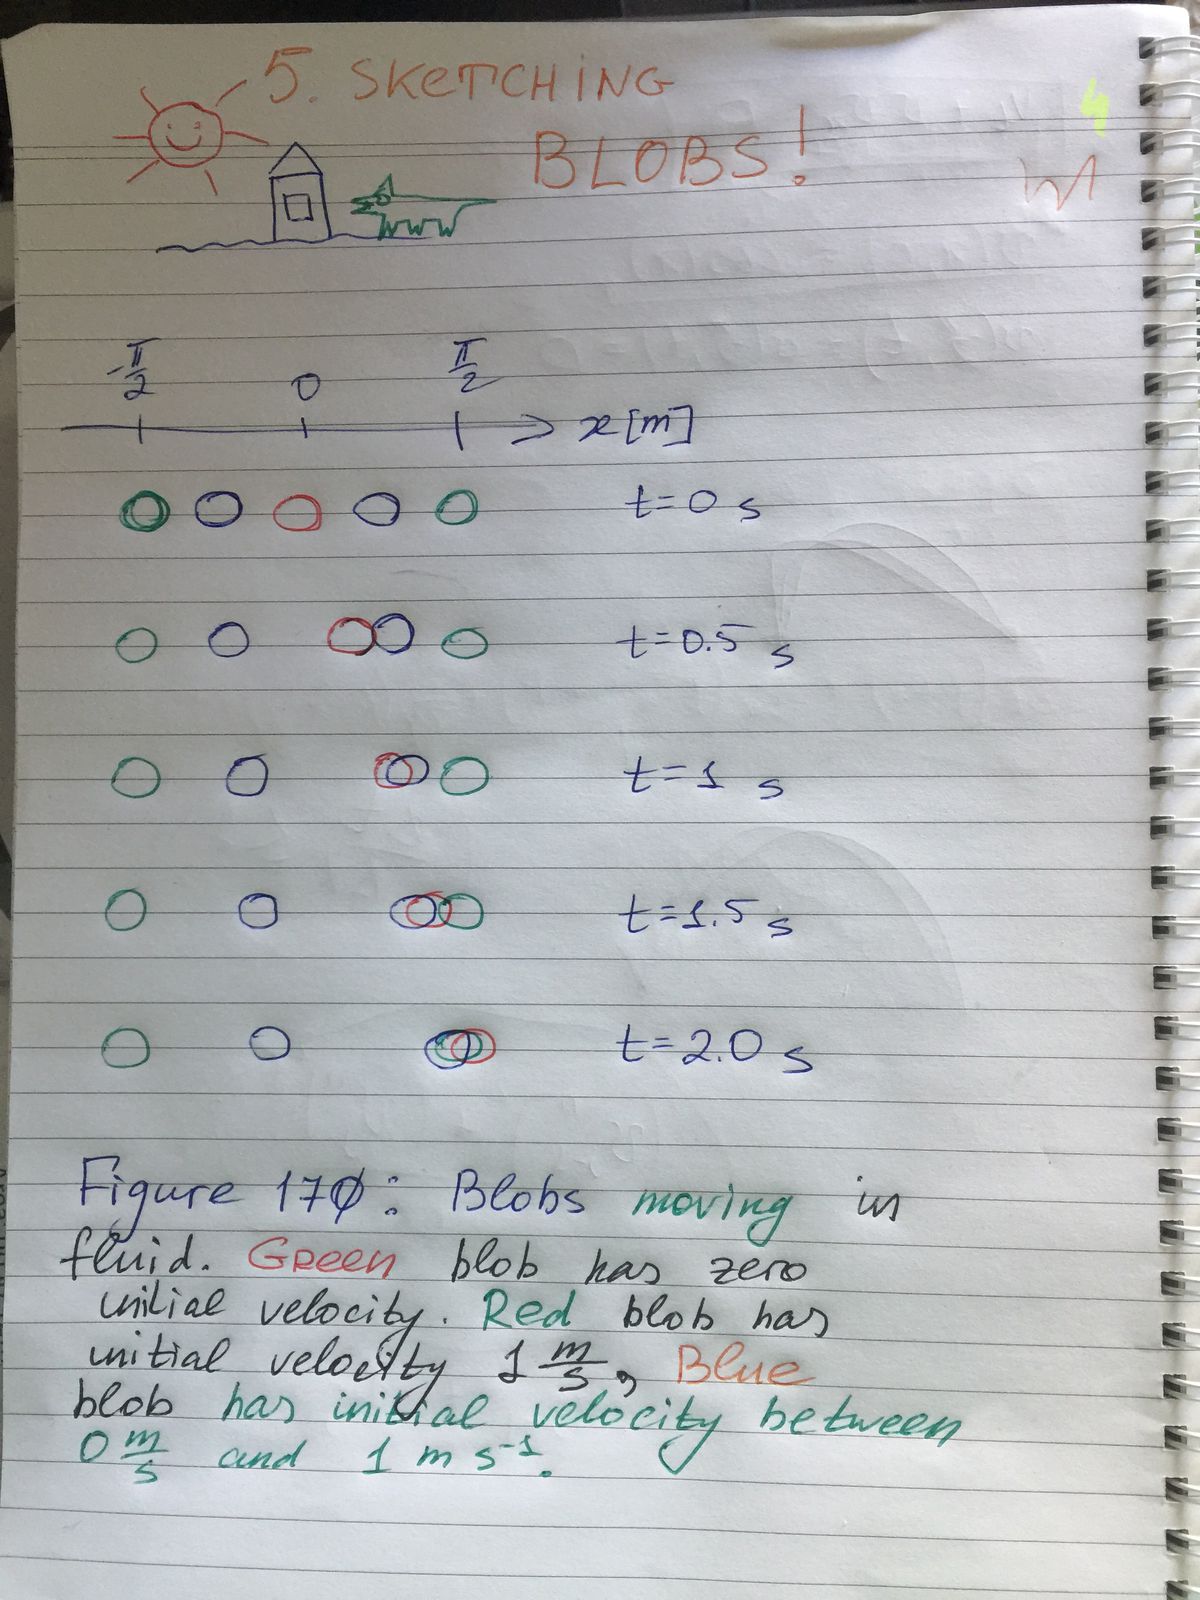 5. SKETCHING
BLOBS!
4
-π/2 0 π/2
x [m]
t=0 s
t=0.5 s
t=1 s
t=1.5 s
t=2.0 s
Figure 170: Blobs moving in
fluid. Green blob has zero
initial velocity. Red blob has
initial velocity 1 m/s, Blue
blob has initial velocity between
0 m/s and 1 m s⁻¹.